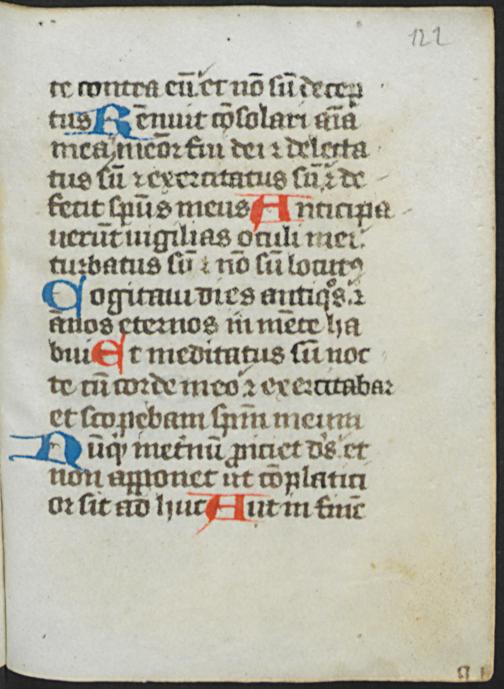 122
te contra eū et nō sū decep
tus Renuit cōsolari aīa
mea, meōr fui dei ⁊ delecta
tus sū ⁊ exercitatus sū ⁊ de
fecit spūs meus Anticipa
uerūt uigilias oculi mei:
turbatus sū ⁊ nō sū locutꝰ
Cogitaui dies antiqͦs ⁊
ānos eternos in mēte ha
bui Et meditatus sū noc
te cū corde meo ⁊ exercitabar
et scopebam spm̄ meum
Nūqͥ inet̄nū ꝓiciet ds̄ et
non apponet ut cōplaciti
or sit adhuc Aut in finē